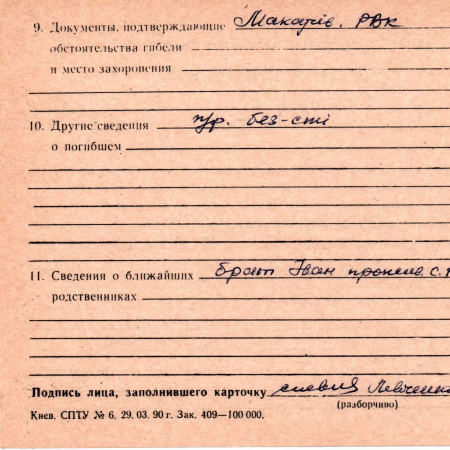 9. Документы, подтверждающие Макарів. РВК
обстоятельства гибели
и место захоронения
10. Другие сведения п/р. без-сті
о погибшем
11. Сведения о ближайших брат Іван прожив. с.
родственниках
Подпись лица, заполнившего карточку
(разборчиво)
Киев. СПТУ № 6. 29. 03. 90 г. Зак. 409—100 000.